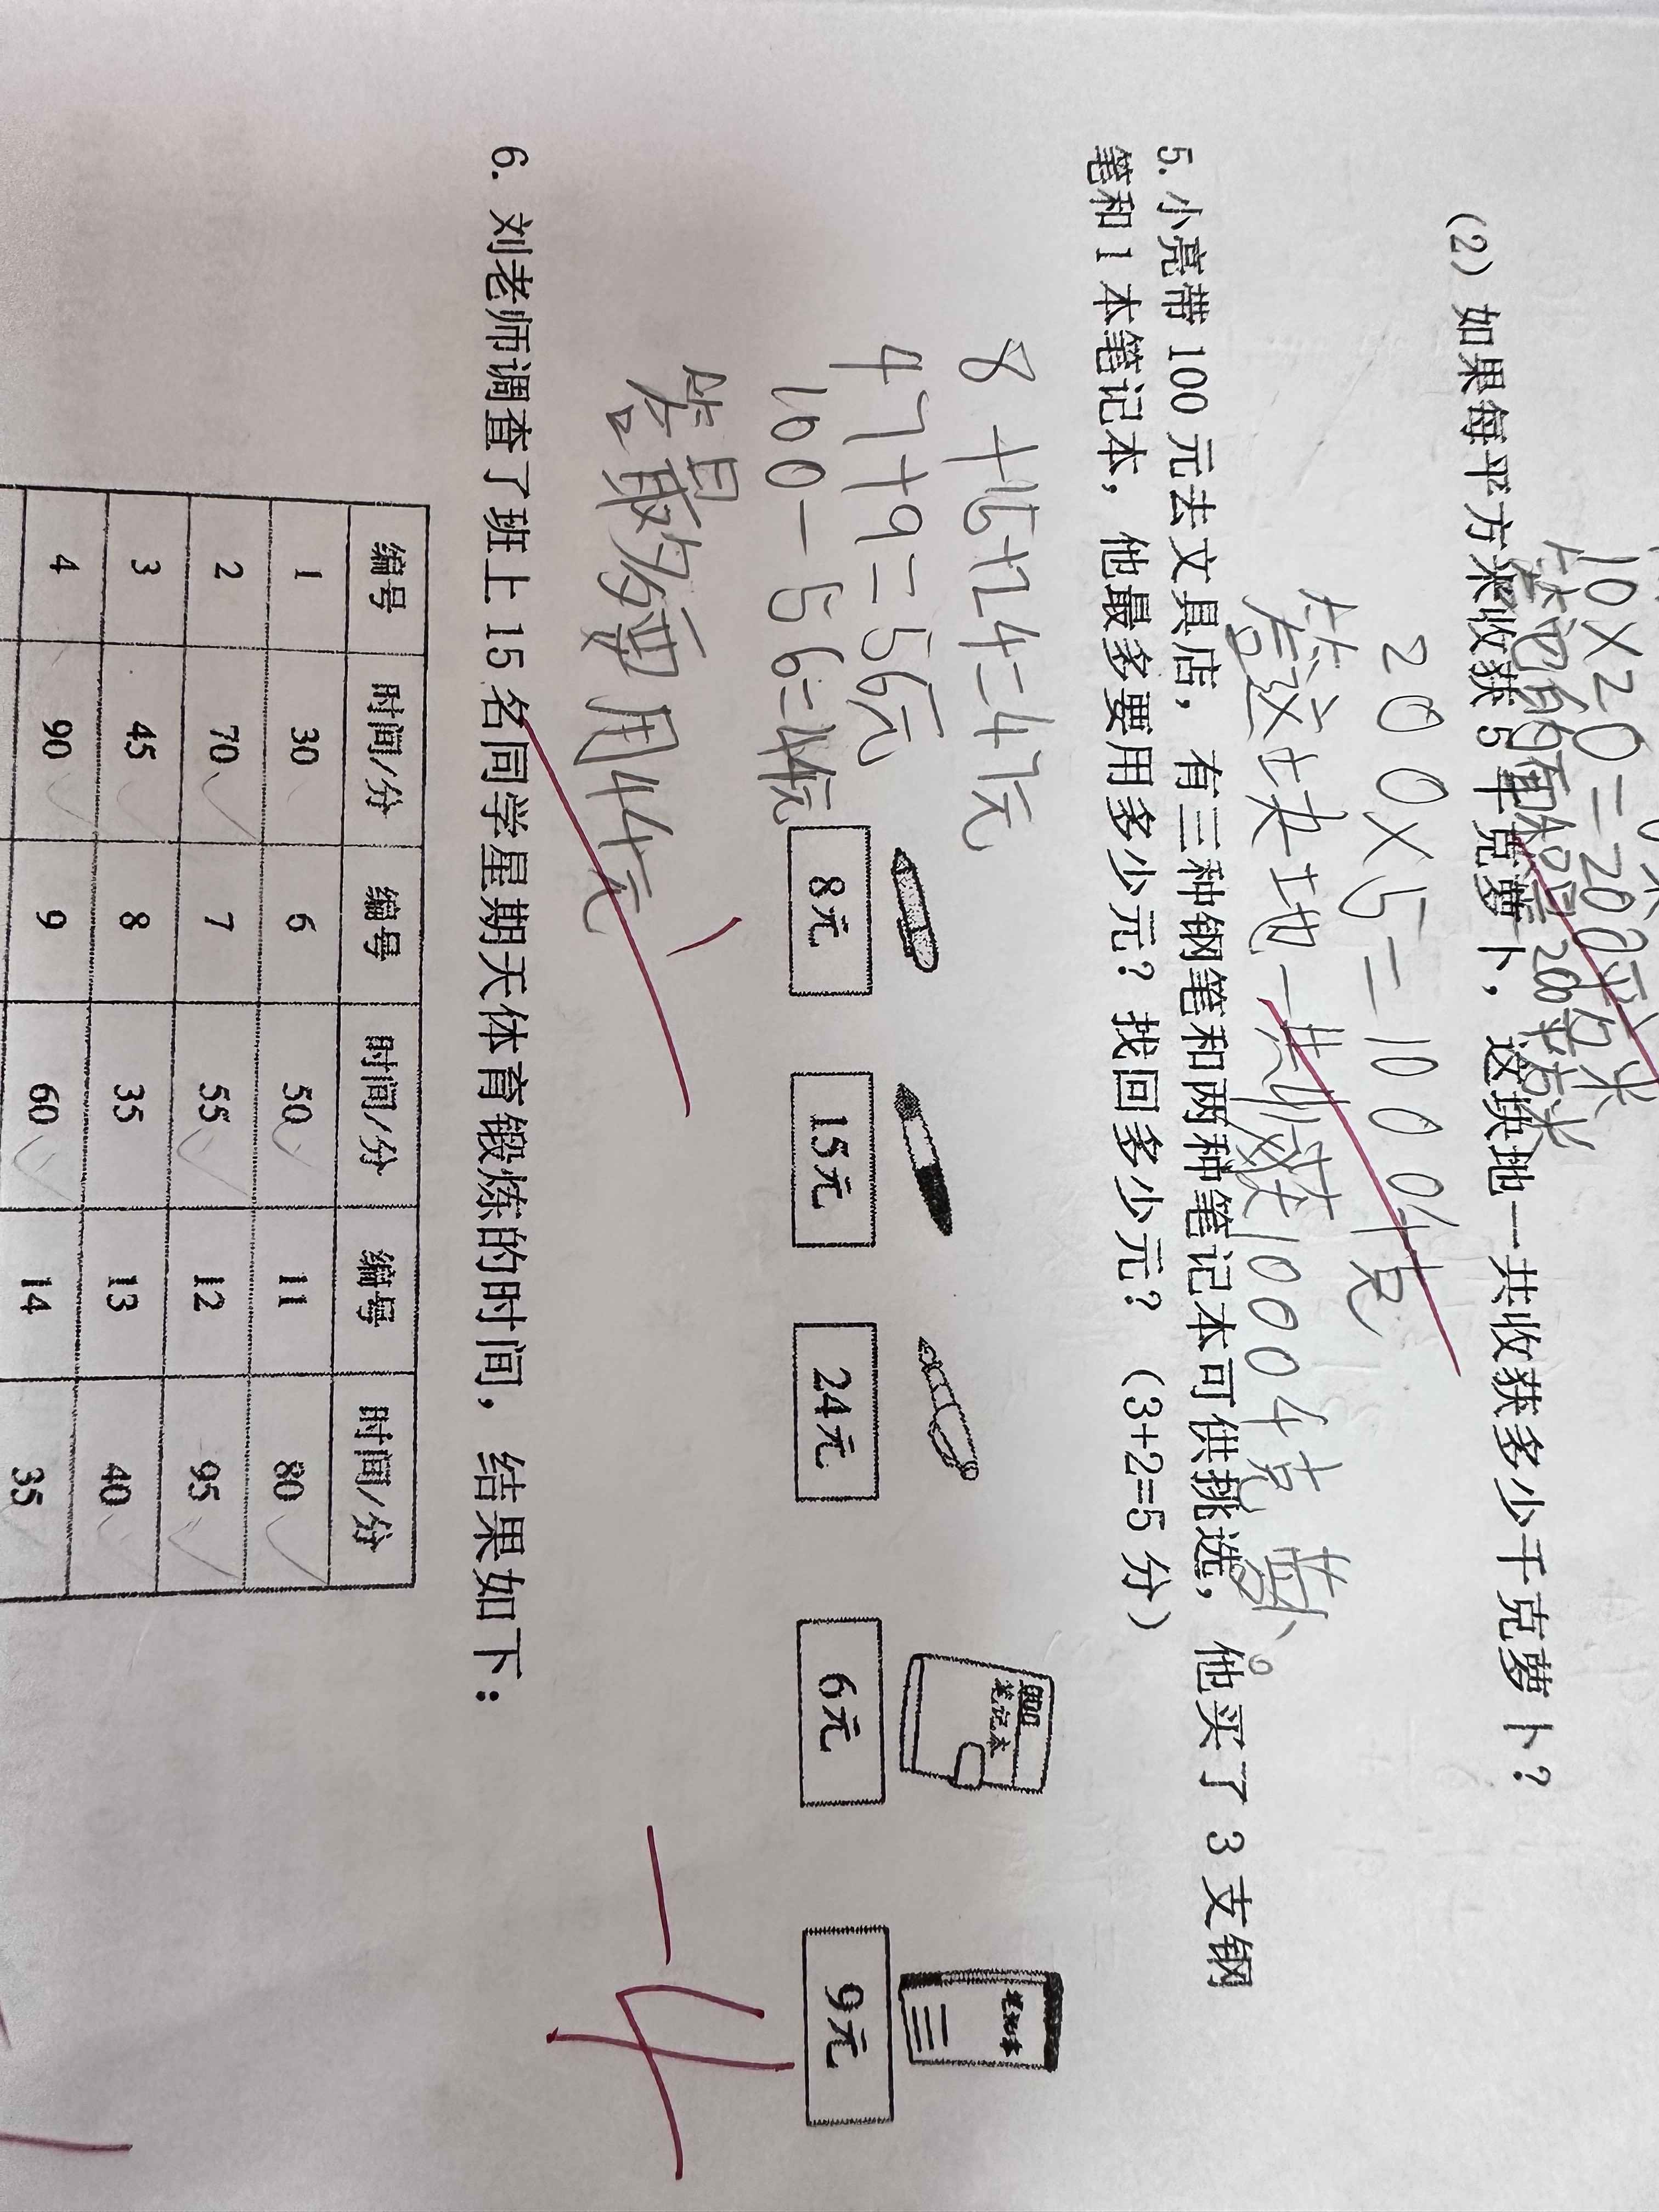 10×20=200平方米
答:它的面积是200平方米
(2) 如果每平方米收获 5 千克萝卜，这块地一共收获多少千克萝卜?
200×5=1000千克
答:这块地一共收获1000千克萝卜。
5. 小亮带 100 元去文具店，有三种钢笔和两种笔记本可供挑选，他买了 3 支钢
笔和 1 本笔记本，他最多要用多少元? 找回多少元? (3+2=5 分)
8+15+24=47元
47+9=56元
100-56=44元
8元 15元 24元 6元 9元
笔记本
笔记本
答:最多要用44元
-4
6. 刘老师调查了班上 15 名同学星期天体育锻炼的时间，结果如下:
编号 时间/分 编号 时间/分 编号 时间/分
1 30 6 50 11 80
2 70 7 55 12 95
3 45 8 35 13 40
4 90 9 60 14 35